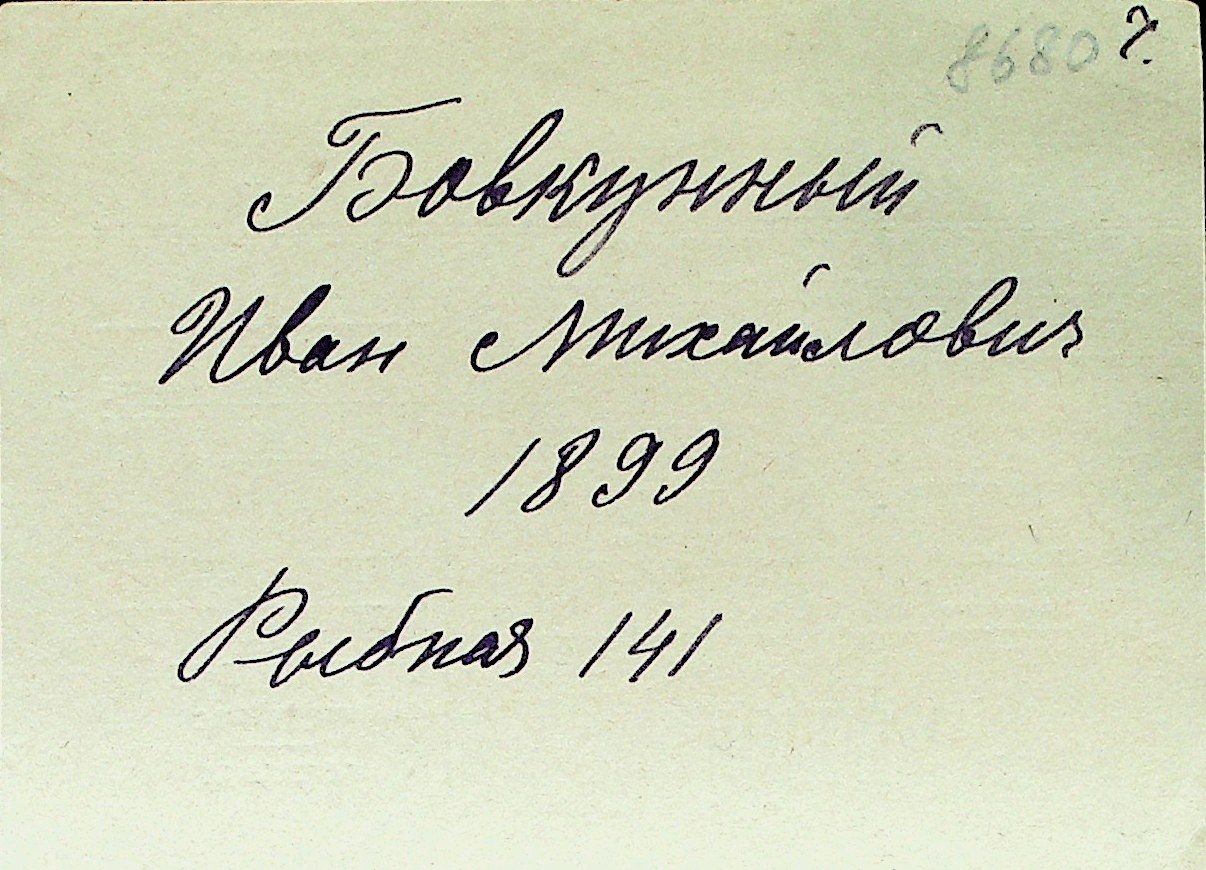 8680 ?
Бовкунный
Иван Михайлович
1899
Рыбная 141